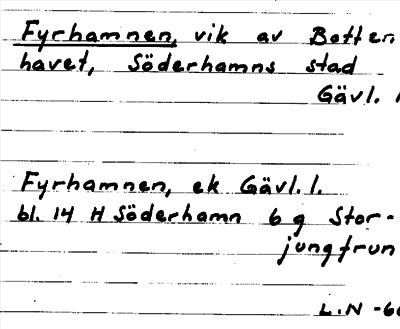 Fyrhamnen, vik av Botten
havet, Söderhamns stad
Gävl.
Fyrhamnen, ek Gävl. l.
bl. 14 H Söderhamn 6 g Stor-
jungfrun
L.N -60